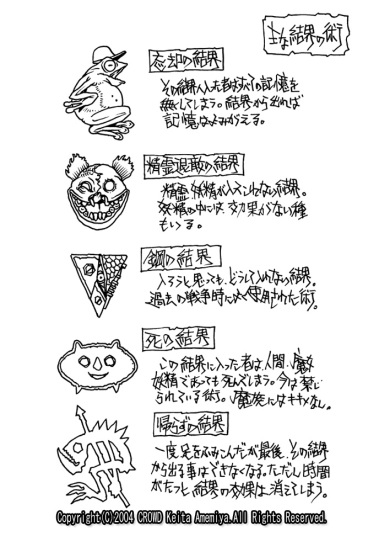 主な結界の術
忘却の結界
その結界に入った者はすべての記憶を
無くしてしまう。結界から出れば
記憶はよみがえる。
精霊退散の結界
精霊、妖精が入りこめない結界。
妖精の中には、効果がない種
もいる。
鋼の結界
入ろうと思っても、どうしても入れない結界。
過去の戦争時によく使用された術。
死の結界
この結界に入った者は、人間、魔獣
妖精であっても死んでしまう。今は禁じ
られている術。魔族にはキキメなし。
帰らずの結界
一度足をふみこんだが最後、その結界
から出る事はできなくなる。ただし時間
がたつと、結界の効果は消えてしまう。
Copyright(C)2004 CROWD Keita Amemiya.All Rights Reserved.